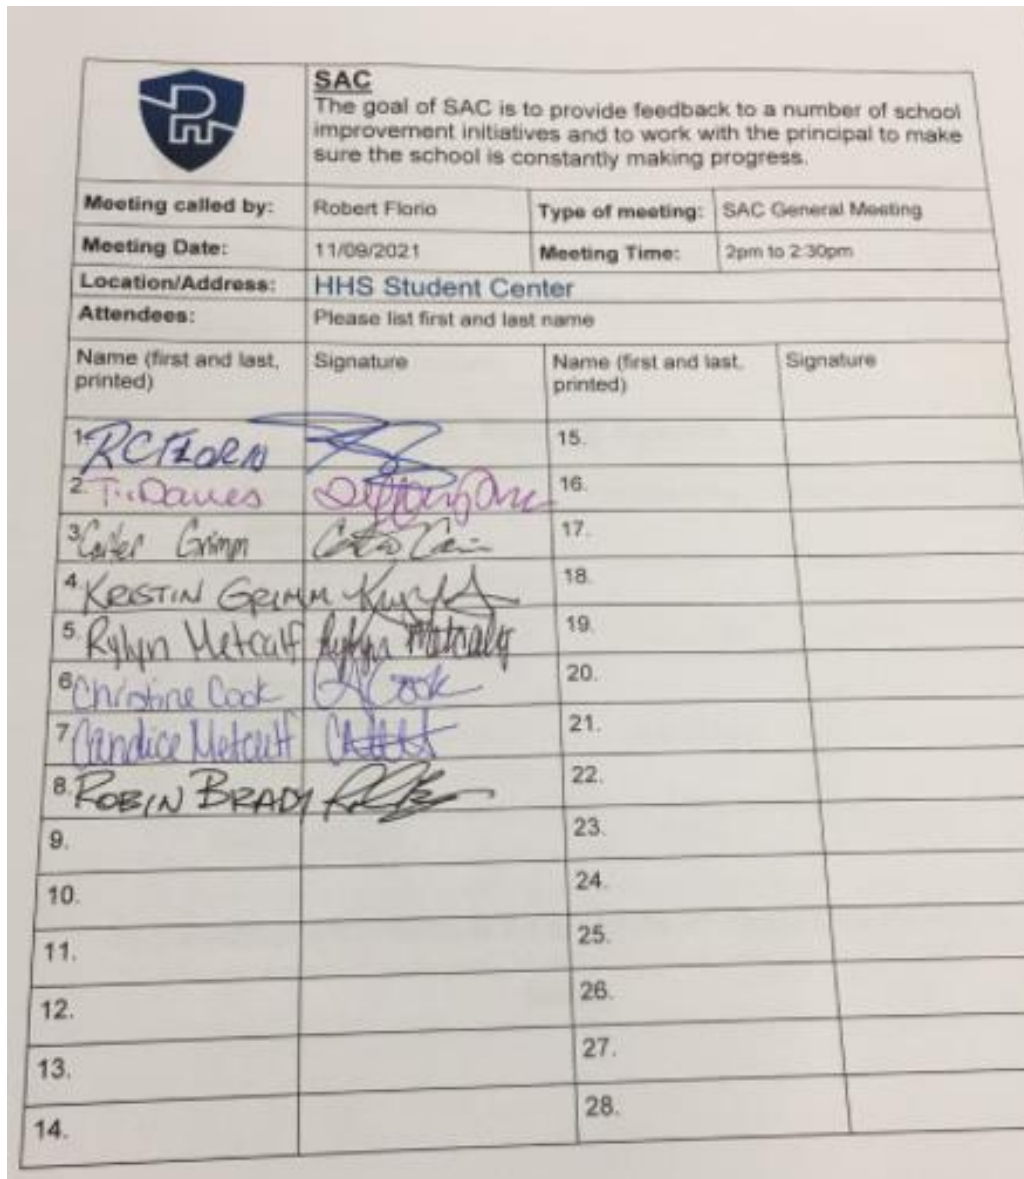 SAC
The goal of SAC is to provide feedback to a number of school
improvement initiatives and to work with the principal to make
sure the school is constantly making progress.
Meeting called by: Robert Florio Type of meeting: SAC General Meeting
Meeting Date: 11/09/2021 Meeting Time: 2pm to 2:30pm
Location/Address: HHS Student Center
Attendees: Please list first and last name
Name (first and last, Signature Name (first and last, Signature
printed) printed)
1. RC FLORIO 15.
2. T. Davies 16.
3. Carter Grimm 17.
4. KRISTIN GRIMM 18.
5. Rylyn Metcalf Rylyn Metcalf 19.
6. Christine Cook Cook 20.
7. Candice Metcalf 21.
8. ROBIN BRADY 22.
9. 23.
10. 24.
11. 25.
12. 26.
13. 27.
14. 28.